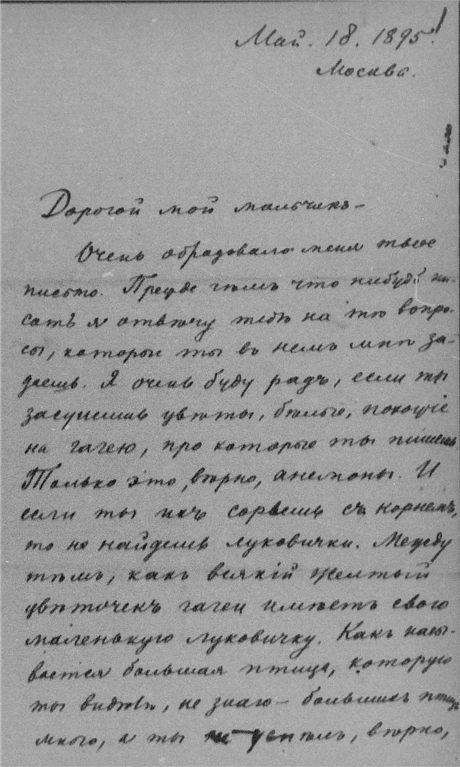 Май. 18. 1895!
Москва.
Дорогой мой мальчикъ –
Очень обрадовало меня твое
письмо. Прежде чѣмъ что нибудь пи-
сать я отвѣчу тебѣ на тѣ вопро-
сы, которые ты въ немъ мнѣ за-
даешь. Я очень буду радъ, если ты
засушишь цвѣты, бѣлые, похожіе
на гагею, про которые ты пишешь
Только это, вѣрно, анемоны. И
если ты ихъ сорвешь съ корнемъ,
то не найдешь луковички. Между
тѣмъ, какъ всякій желтый
цвѣточекъ гагеи имѣетъ свою
маленькую луковичку. Какъ назы-
вается большая птица, которую
ты видѣлъ, не знаю – большихъ птицъ
много, а ты не успѣлъ, вѣрно,